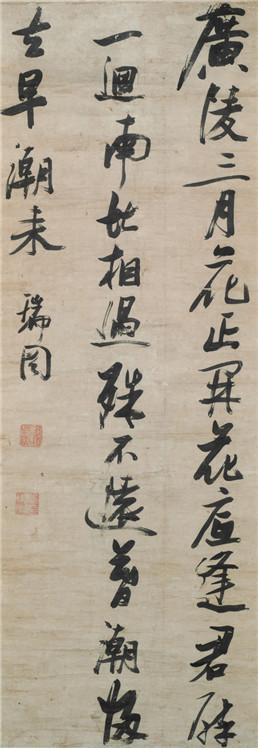 廣陵三月花正開花底逢君醉
一迴南北相過殊不遠暮潮
去早潮來
瑞圖